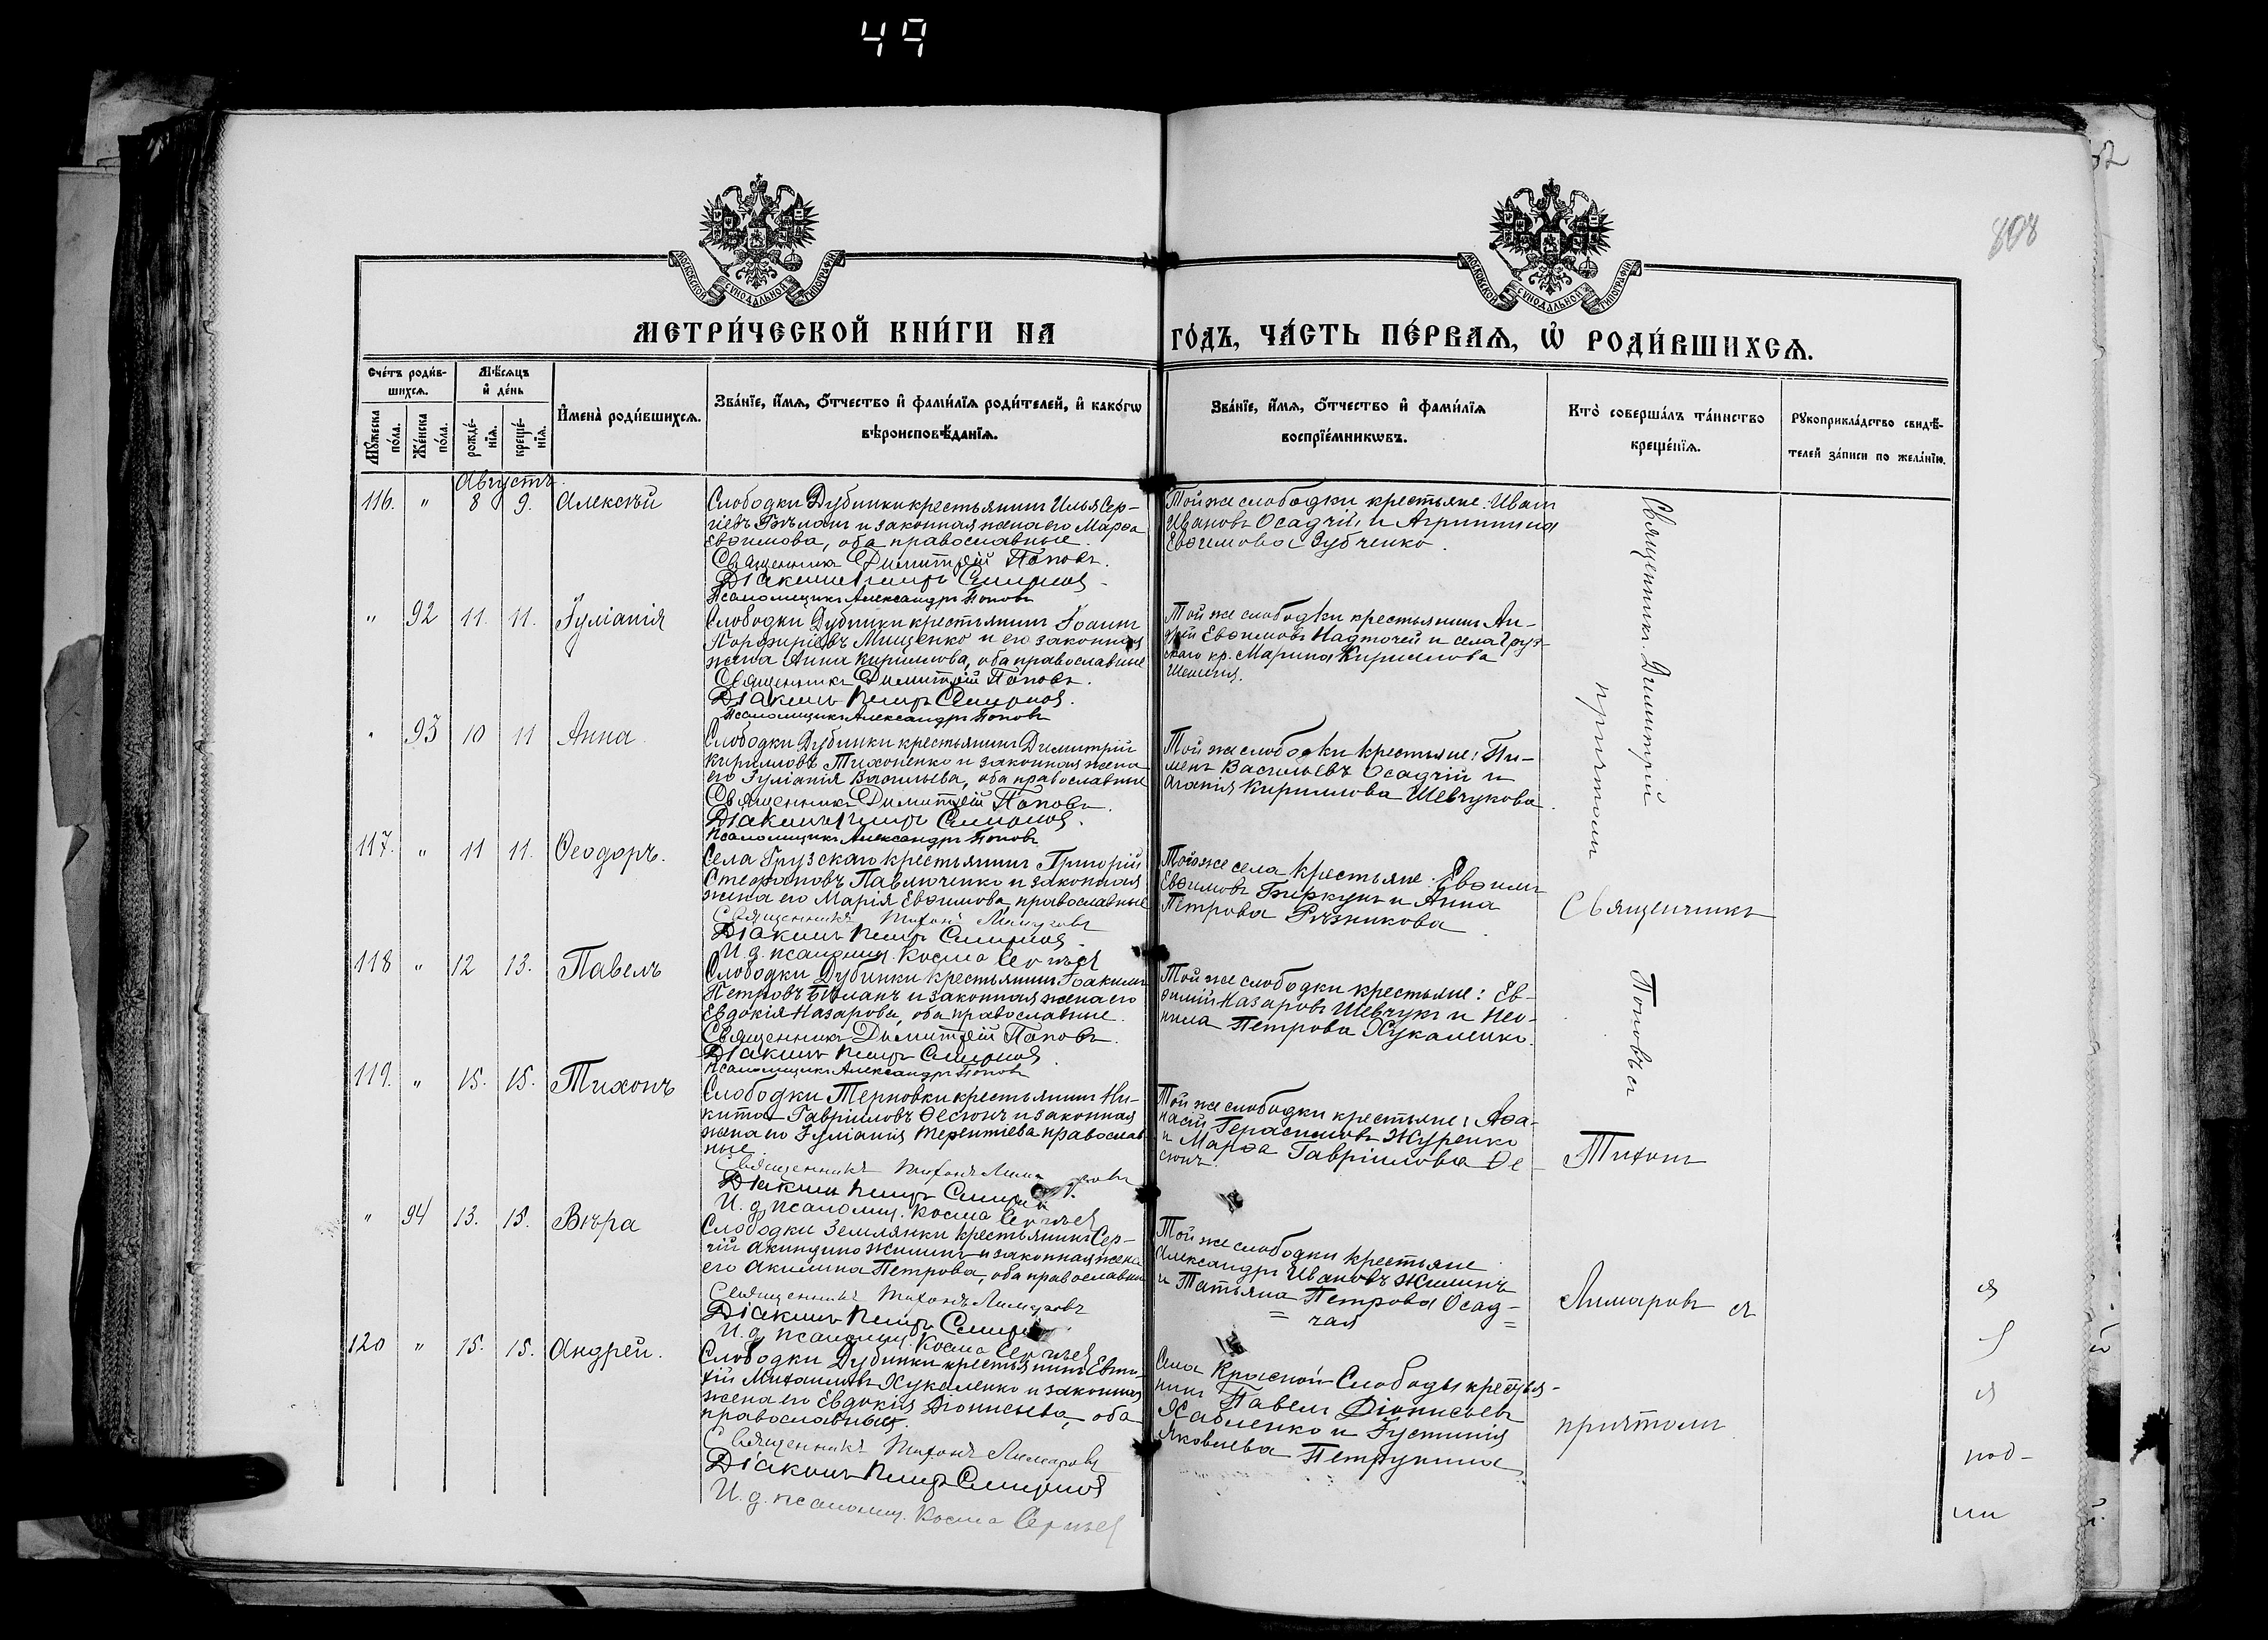 49
808
МОСКОВСКОЙ СѴНОДАЛЬНОЙ ТИПОГРАФІИ
МОСКОВСКОЙ СѴНОДАЛЬНОЙ ТИПОГРАФІИ
МЕТРИ́ЧЕСКОЙ КНИ́ГИ НА ГО́ДЪ, ЧА́СТЬ ПЕ́РВАѦ, Ѡ҆ РОДИ́ВШИХСѦ.
Сче́тъ роди́в-
шихсѧ.
Мꙋ́жеска по́ла.
Же́нска по́ла.
Мѣ́сѧцъ
и҆ де́нь
рожде́-
нїѧ.
креще́-
нїѧ.
И҆мена̀ роди́вшихсѧ.
Зва́нїе, и҆́мѧ, ѻ҆́тчество и҆ фами́лїѧ роди́телей, и҆ како́гѡ
вѣроисповѣ́данїѧ.
Зва́нїе, и҆́мѧ, ѻ҆́тчество и҆ фами́лїѧ
воспрїе́мникѡвъ.
Кто̀ соверша́лъ та́инство
креще́нїѧ.
Рꙋкоприкла́дство свидѣ́-
телей за́писи по жела́нїю.
Августъ.
116. " 8 9. Алексѣй
Слободки Дубинки крестьянинъ Илья Сер-
гіевъ Бѣланъ и законная жена его Марѳа
Евѳимова, оба православные.
Священникъ Димитрій Поповъ.
Діаконъ Петръ Смирнов
Псаломщикъ Александръ Поповъ
Той же слободки крестьяне: Иванъ
Ивановъ Осадчій, и Агриппина
Евѳимова Зубченко.
" 92 11. 11. Іуліанія
Слободки Дубинки крестьянинъ Іоаннъ
Порфиріевъ Мищенко и его законная
жена Анна Кириллова, оба православные
Священникъ Димитрій Поповъ.
Діаконъ Петръ Смирнов.
Псаломщикъ Александръ Поповъ
Той же слободки крестьянинъ Ан-
дрей Евѳимовъ Надточей и села Груз-
скаго кр. Марина Кириллова
" 93 10 11 Анна
Слободки Дубинки крестьянинъ Димитрій
Кирилловъ Тихоненко и законная жена
его Іуліанія Васильева, оба православные
Священникъ Димитрій Поповъ.
Діаконъ Петръ Смирнов.
Псаломщикъ Александръ Поповъ
Той же слободки крестьяне: Пи-
менъ Васильевъ Осадчій и
Агапія Кириллова Шевчукова.
117. " 11 11. Ѳеодоръ.
Села Грузскаго крестьянинъ Григорій
Стефановъ Павлюченко и законная
жена его Марія Евѳимова, православные
Священникъ Тихонъ Лимаровъ
Діаконъ Петръ Смирнов.
И. д. псаломщ. Косма Сергѣев
Того же села крестьяне: Евѳимъ
Евѳимовъ Биркунъ и Анна
Петрова Рѣзникова.
118 " 12 13. Павелъ
Слободки Дубинки крестьянинъ Іоакимъ
Петровъ Бѣланъ и законная жена его
Евдокія Назарова, оба православные.
Священникъ Димитрій Поповъ.
Діаконъ Петръ Смирнов.
Псаломщикъ Александръ Поповъ
Той же слободки крестьяне: Ев-
ѳимій Назаровъ Шевчукъ и Нео-
нила Петрова Жукаленко.
119. " 15. 15. Тихонъ
Слободки Терновки крестьянинъ Ни-
кита Гавриловъ Ѳесюнъ и законная
жена его Іуліанія Терентіева православ-
ные
Священникъ Тихонъ Лимаровъ
Діаконъ Петръ Смирнов
И. д. псаломщ. Косма Сергѣев
Той же слободки крестьяне: Аѳа-
насій Герасимовъ Журенко
и Марѳа Гавріилова Ѳе-
сюнъ.
" 94 13. 15. Вѣра
Слободки Землянки крестьянинъ Сер-
гій Жилинъ и законная жена
его Акилина Петрова, оба православные
Священникъ Тихонъ Лимаровъ
Діаконъ Петръ Смирнов
И. д. псаломщ. Косма Сергѣев
Той же слободки крестьяне
Александръ Ивановъ Жилинъ
и Татьяна Петрова Осад-
чая
120 " 15. 15. Андрей.
Слободки Дубинки крестьянинъ Евти-
хій Михаиловъ Жукаленко и законная
жена его Евдокія Діонисьева, оба
православные.
Священникъ Тихонъ Лимаровъ
Діаконъ Петръ Смирнов
И. д. псаломщ. Косма Сергѣев
Села Красной Слободы крестья-
нинъ Павелъ Діонисьевъ
и Іустинія
Яковлева
Священникъ Димитрій
Поповъ съ
причтомъ
Священникъ
Тихонъ
Лимаровъ съ
причтомъ
под-